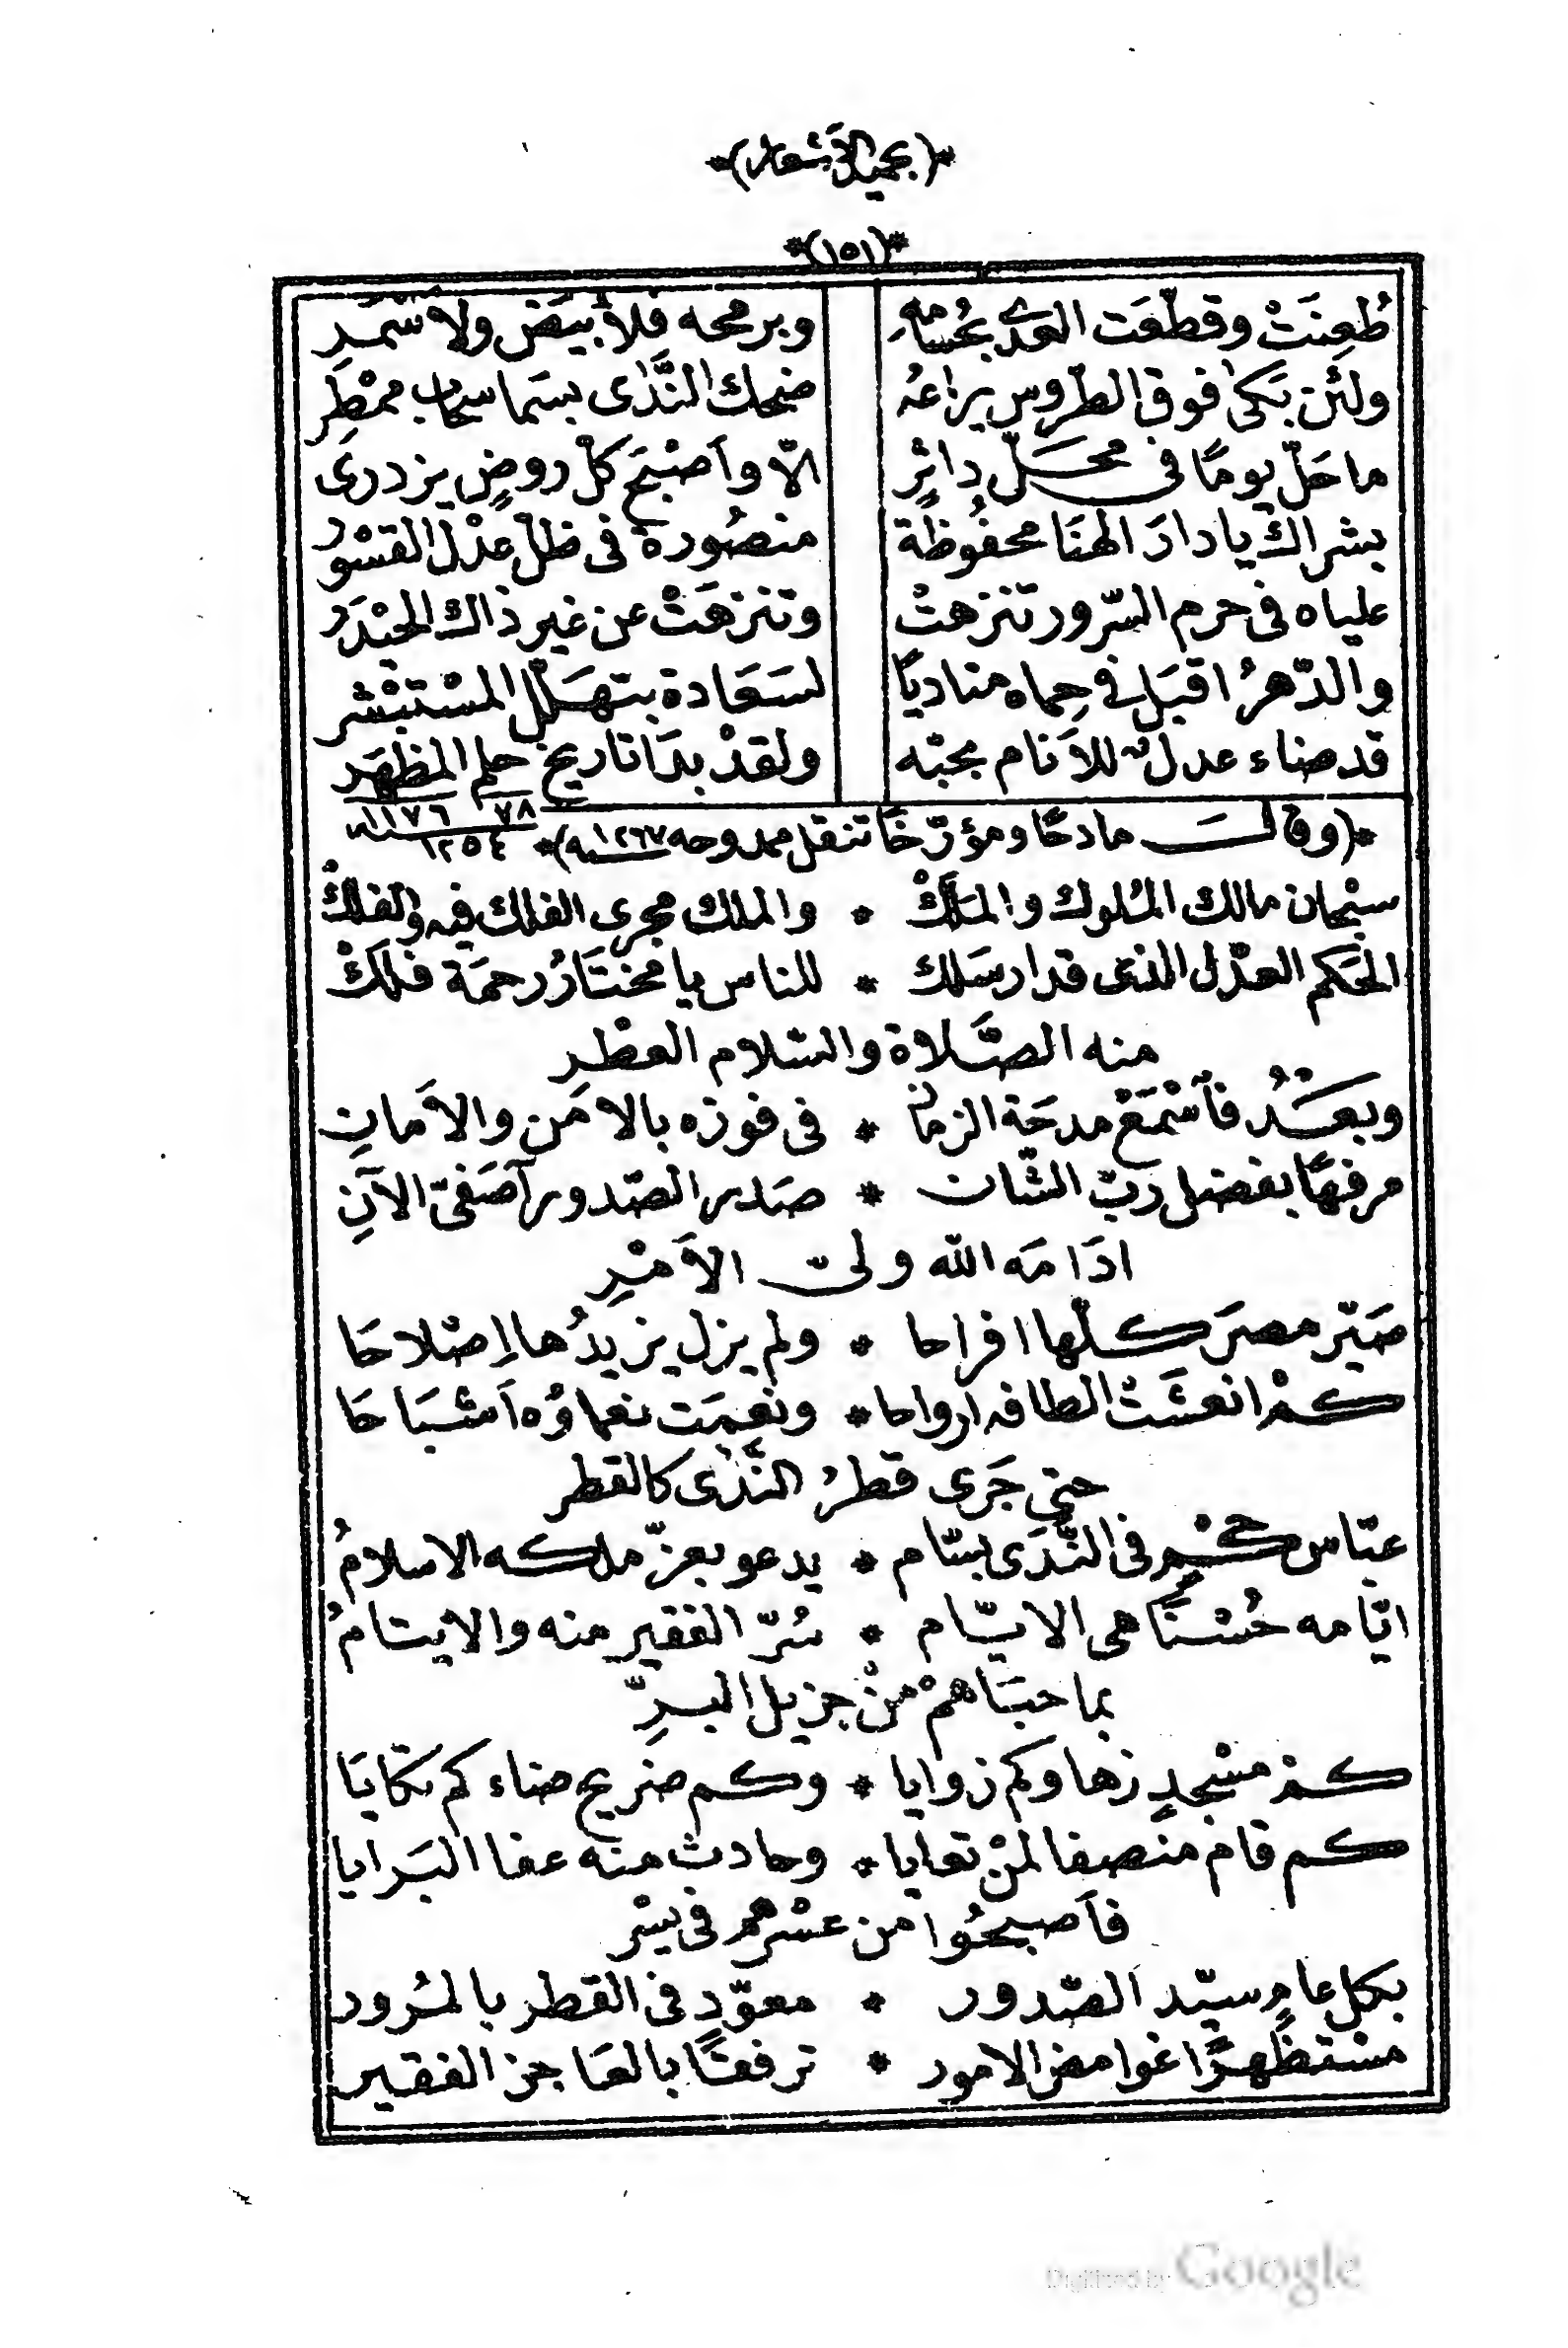 *(بجميل الأشعار)*
*(١٥١)*
طُعِنَتْ وقطّعَت العدى بحُسَامهِ وبرمحه فلأبيَض ولاسْمَرِ
ولئن بَكىٰ فوق الطروس يراعُه ضحك النَّدَى بسَما سحاب ممْطِرِ
ما حَلّ يومًا فى محَلّ داثرٍ الّا وأصْبَحَ كلّ روضٍ يزدرى
بشراك يا دارَ الهنَا محفُوظة منصُورة فى ظلّ عدْل القسْوَرِ
علياه فى حرم السّرور تنزهتْ وتنزهَتْ عن غير ذاك الحيْدَرِ
والدّهرُ اقبَل فى حِماه مناديًا لسَعَادة بتهَلّل المسْتبْشر
قد ضاء عدلٌ للأنام بحبّه ولقدْ بدَا تاريخ حلم المظهَرِ
٧٨ ١١٧٦
سنة ١٢٥٤
*(وقالَــ مادحًا ومؤرّخًا تنقل ممدوحه سنة ١٢٦٧)*
سبْحان مالك المُلوك والمَلَكْ * والملك مجرى الفلك فيه والفلكُ
الحَكم العدْل الذى قد ارسَلك * للناس يا مختَارُ رحمَة فلكْ
منه الصَّلاة والسّلام العطْرِ
وبعـدُ فأسْمَعْ مدحَة الزمانِ * فى فوزه بالامَن والأمانِ
مرفهًا بفضل ربّ الشّان * صَدر الصّدور آصَفىّ الآنِ
ادَامَه الله ولىّ الأمْرِ
صَيّر مصرَ كلّها افراحا * ولم يزل يزيدُها إصْلاحَا
كمْ انعشَتْ الطافه ارواحا * ونعِمَت نعماؤه أشبَاحَا
حتى جَرَى قطرُ النَّدَى كالقطر
عبّاس حكْمٍ فى النَّدَى بسّام * يدعو بعزّ ملكه الاسلامُ
ايّامه حُسْنًا هى الايّام * سُرّ الفقير منه والايتامُ
بما حبَاهمْ منْ جزيل البرِّ
كمْ مسْجدٍ زها وكم زوايا * وكم ضريح ضاء كم تكايَا
كم قام منصفا لمنْ تعايا * وحادث منه عفا البَرايا
فأصبحُوا من عسْرهم فى يسْر
بكل عامٍ سيّد الصّدور * معوّدٍ فى القطر بالمرُور
مسْتظهرًا غوامض الامور * ترفقًا بالعَاجز الفقير
Digitized by Google